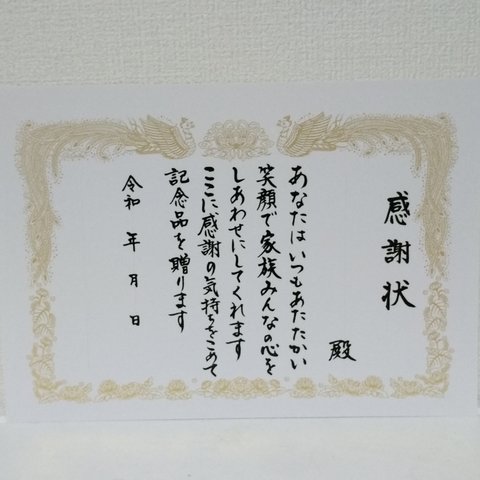 感謝状
殿
あなたはいつもあたたかい
笑顔で家族みんなの心を
しあわせにしてくれます
ここに感謝の気持ちをこめて
記念品を贈ります
令和 年 月 日